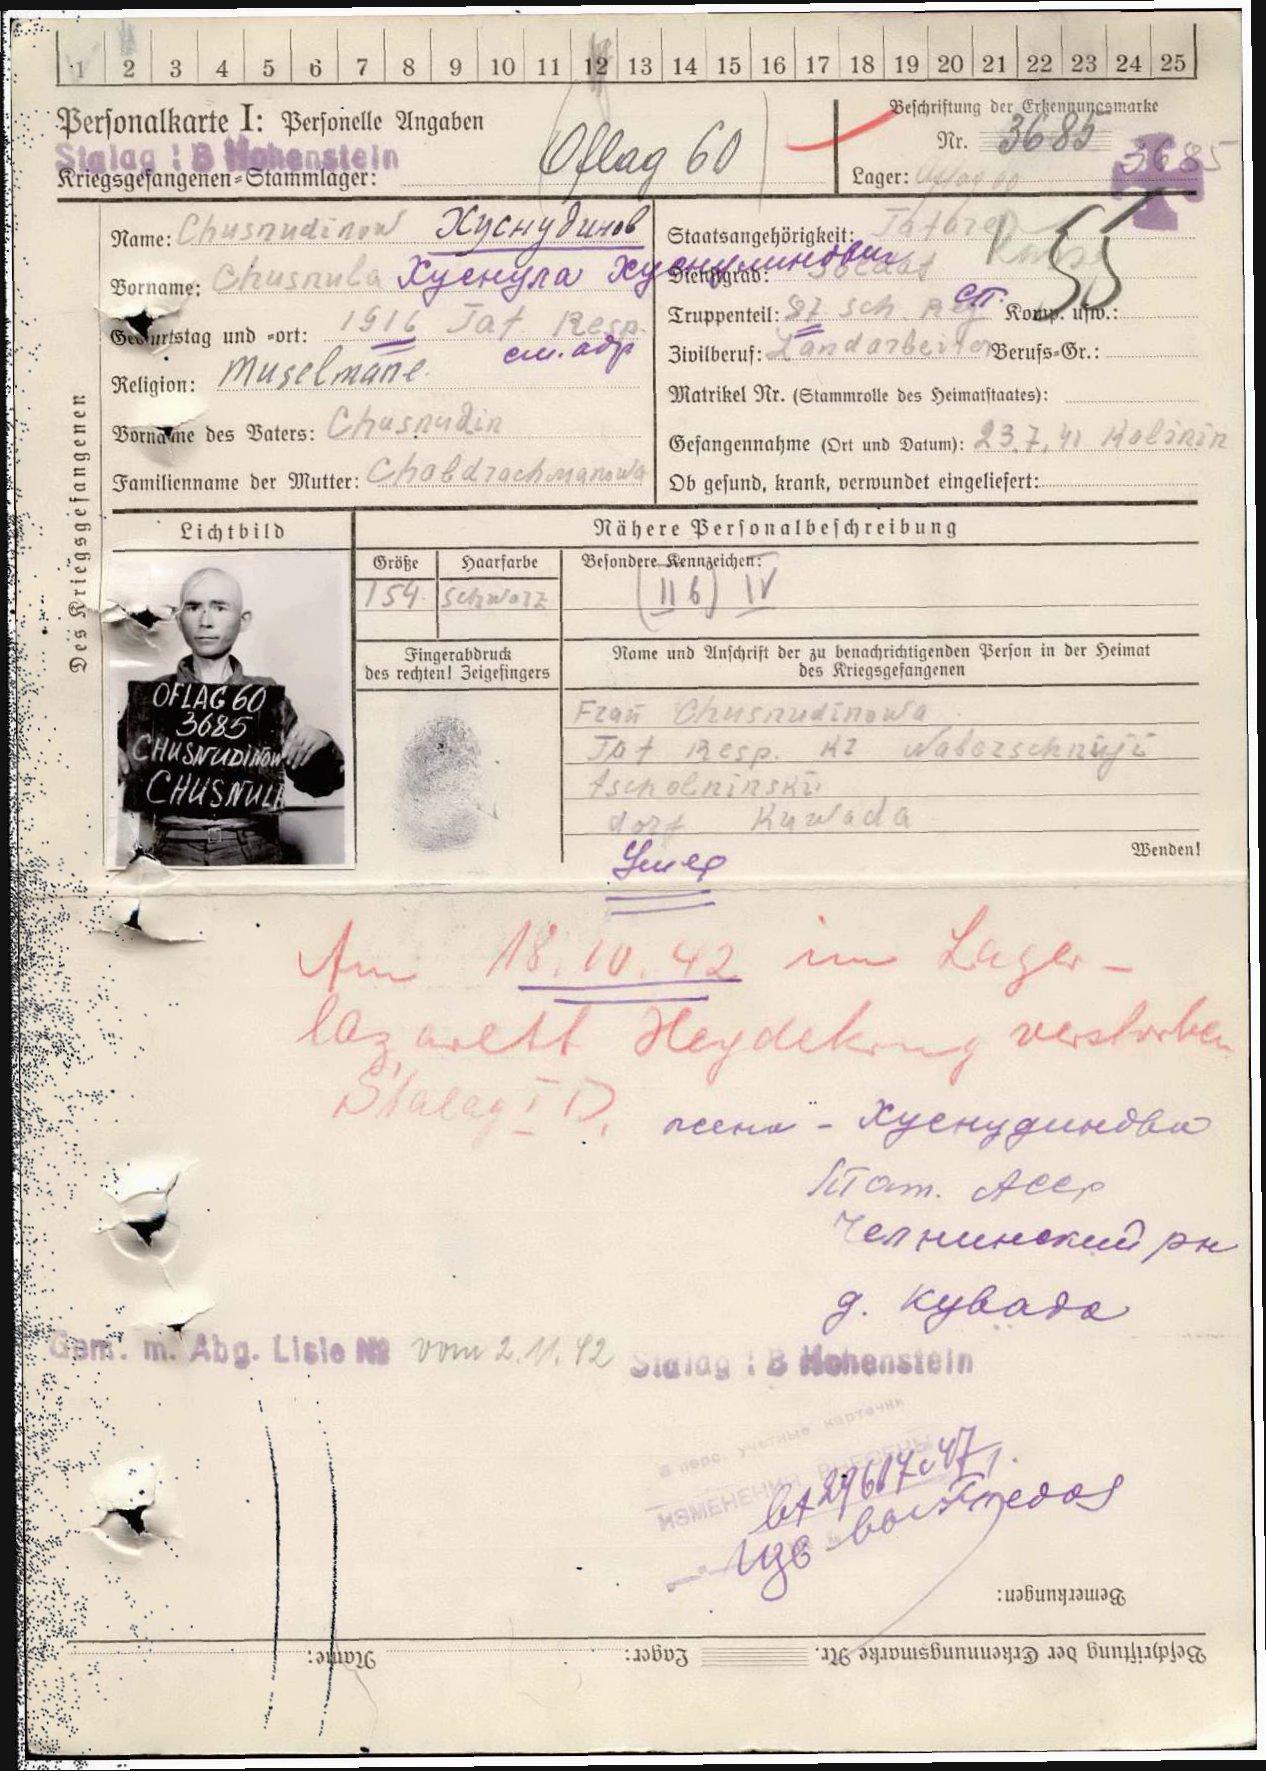 1 2 3 4 5 6 7 8 9 10 11 12 13 14 15 16 17 18 19 20 21 22 23 24 25
Personalkarte I: Personelle Angaben
Stalag I B Hohenstein
Kriegsgefangenen-Stammlager: Oflag 60
Beschriftung der Erkennungsmarke
Nr. 3685
3685
Lager: Oflag 60
55
Des Kriegsgefangenen
Name: Chusnudinow Хуснудинов
Vorname: Chusnula Хуснула Хуснудинович
Geburtstag und -ort: 1916 Tat. Resp.
см. адр
Religion: Muselmane
Vorname des Vaters: Chusnudin
Familienname der Mutter: Chabdrachmanowa
Staatsangehörigkeit: Tatare
Dienstgrad: Soldat
Truppenteil: 87 Sch. Reg сп. Komp. usw.:
Zivilberuf: Landarbeiter Berufs-Gr.:
Matrikel Nr. (Stammrolle des Heimatstaates):
Gefangennahme (Ort und Datum): 23.7.41 Kalinin
Ob gesund, krank, verwundet eingeliefert:
Lichtbild
OFLAG 60
3685
CHUSNUDINOW
CHUSNUL
Nähere Personalbeschreibung
Größe Haarfarbe Besondere Kennzeichen:
154. schwarz (II b) IV
Fingerabdruck
des rechten! Zeigefingers
Name und Anschrift der zu benachrichtigenden Person in der Heimat
des Kriegsgefangenen
Frau Chusnudinowa
Tat Resp. Kr Naberschnuji
tscholninski
dorf Kuwada
Wenden!
Умер
Am 18.10.42 im Lager-
lazarett Heydekrug verstorben
Stalag I D.
жена - Хуснудинова
Тат. АССР
Челнинский рн
д. Кувада
Gem. m. Abg. Liste № vom 2.11.42 Stalag I B Hohenstein
в перс. учетные карточки
ИЗМЕНЕНИЯ ВНЕСЕНЫ
Bemerkungen:
Beschriftung der Erkennungsmarke Nr. Lager: Name: